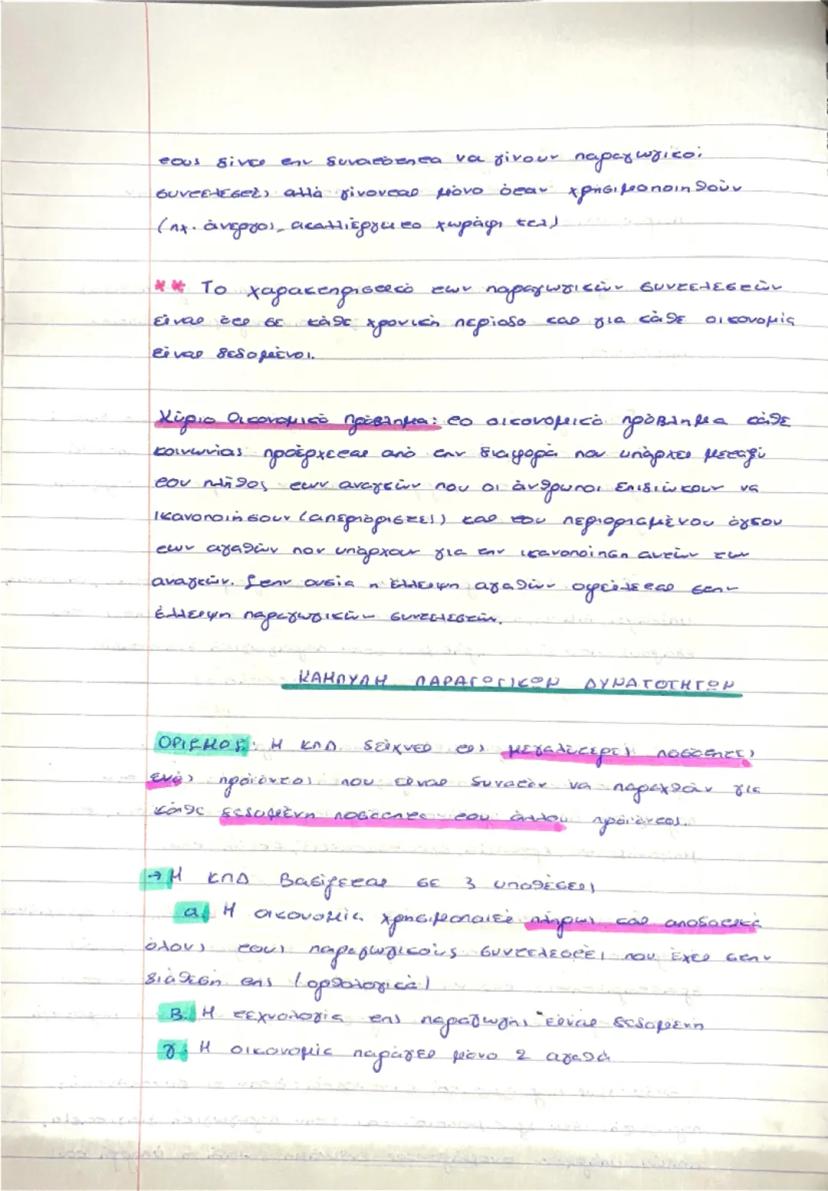 τους δίνει την δυνατότητα να γίνουν παραγωγικοί
συντελεστές αλλά γίνονται μόνο όταν χρησιμοποιηθούν
(πχ. άνεργοι, ακαλλιέργητο χωράφι κτλ)
** Το χαρακτηριστικό των παραγωγικών συντελεστών
είναι ότι σε κάθε χρονική περίοδο και για κάθε οικονομία
είναι δεδομένοι.
Κύριο Οικονομικό πρόβλημα: το οικονομικό πρόβλημα κάθε
κοινωνίας προέρχεται από την διαφορά που υπάρχει μεταξύ
του πλήθος των αναγκών που οι άνθρωποι επιδιώκουν να
ικανοποιήσουν (απεριόριστες) και του περιορισμένου όγκου
των αγαθών που υπάρχουν για την ικανοποίηση αυτών των
αναγκών. Στην ουσία η έλλειψη αγαθών οφείλεται στην
έλλειψη παραγωγικών συντελεστών.
ΚΑΜΠΥΛΗ ΠΑΡΑΓΩΓΙΚΩΝ ΔΥΝΑΤΟΤΗΤΩΝ
ΟΡΙΣΜΟΣ: Η ΚΠΔ δείχνει τις μεγαλύτερες ποσότητες
ενός προϊόντος που είναι δυνατόν να παραχθούν για
κάθε δεδομένη ποσότητα του άλλου προϊόντος.
→ Η ΚΠΔ βασίζεται σε 3 υποθέσεις
α. Η οικονομία χρησιμοποιεί πλήρως και αποδοτικά
όλους τους παραγωγικούς συντελεστές που έχει στην
διάθεση της (ορθολογικά)
β. Η τεχνολογία της παραγωγής είναι δεδομένη
γ. Η οικονομία παράγει μόνο 2 αγαθά